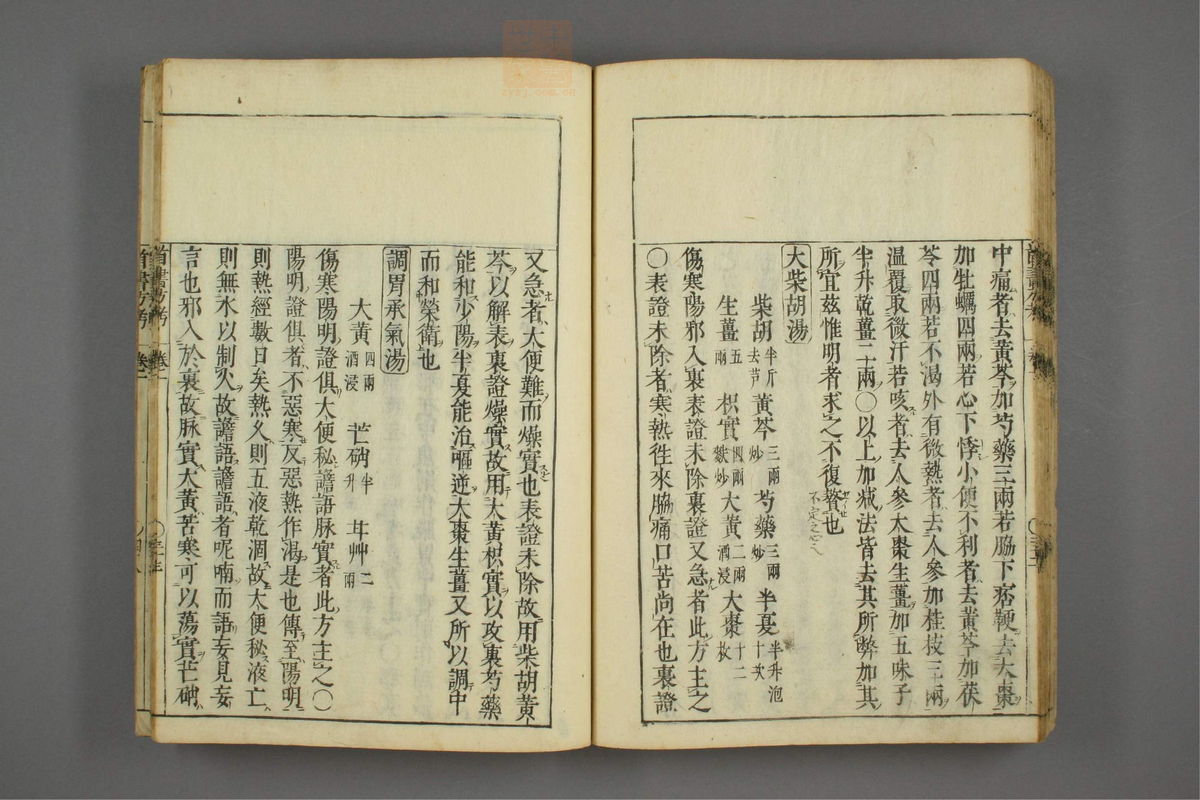 中痛者去黄芩加芍藥三兩若脇下痞鞕去大棗
加牡蠣四兩若心下悸小便不利者去黄芩加茯
苓四兩若不渴外有微熱者去人參加桂枝三兩
温覆取微汗若咳者去人參大棗生薑加五味子
半升乾薑二兩〇以上加减法皆去其所弊加其
所宜兹惟明者求之不復贅也
大柴胡湯
柴胡半斤去芦 黄芩三兩炒 芍藥三兩炒 半夏半升泡十次
生薑五兩 枳實四兩麩炒 大黄二兩酒浸 大棗十二枚
傷寒陽邪入裏表證未除裏證又急者此方主之
〇表證未除者寒熱徃來脇痛口苦尚在也裏證
又急者大便難而燥實也表證未除故用柴胡黄
芩以解表裏證燥實故用大黄枳實以攻裏芍藥
能和少陽半夏能治嘔逆大棗生薑又所以調中
而和榮衛也
調胃承氣湯
大黄四兩酒浸 芒硝半升 甘艸二兩
傷寒陽明證俱大便秘譫語脉實者此方主之〇
陽明證俱者不惡寒反惡熱作渴是也傳至陽明
則熱經數日矣熱久則五液乾涸故大便秘液亡
則無水以制火故譫語譫語者呢喃而語妄見妄
言也邪入於裏故脉實大黄苦寒可以蕩實芒硝
首書方考 卷一